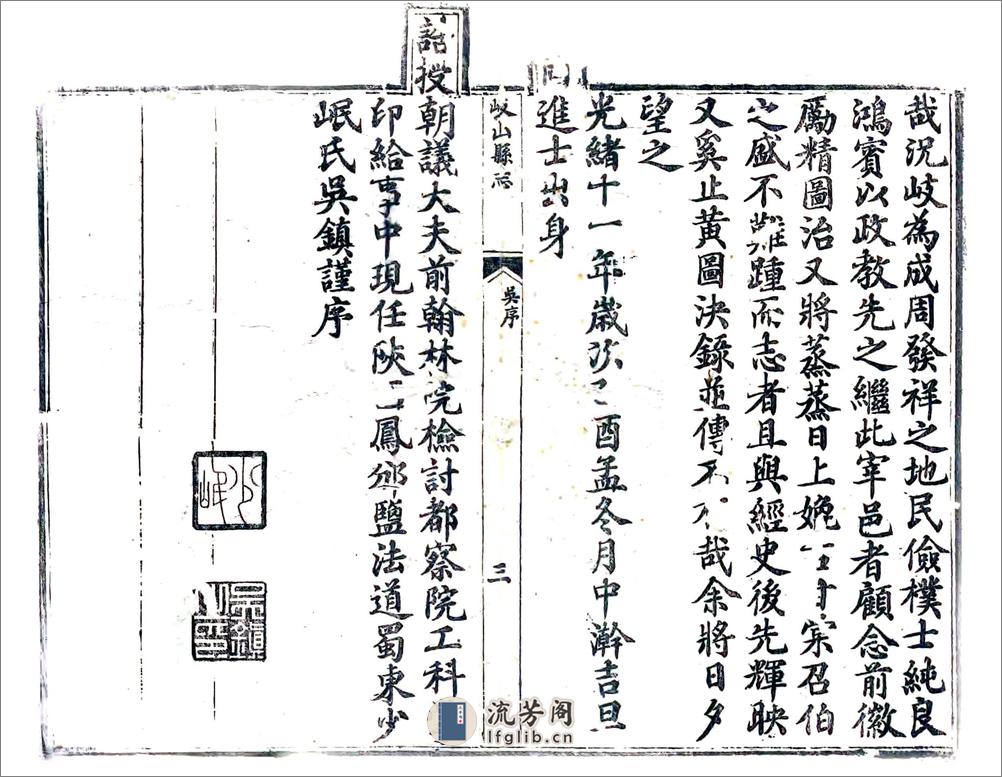 哉況岐為成周發祥之地民儉樸士純良
鴻賓以政教先之繼此宰邑者顧念前徽
勵精圖治又將蒸蒸日上媲召伯
之盛不難踵而志者且與經史後先輝映
又奚止黃圖決錄並傳不哉余將日夕
望之
光緒十一年歲次乙酉孟冬月中澣吉旦
進士出身
岐山縣志
吳序
三
誥授朝議大夫前翰林院檢討都察院工科
印給事中現任陝西鳳邠鹽法道蜀東少
岷氏吳鎮謹序
少岷
吳鎮
流芳阁
lfglib.cn